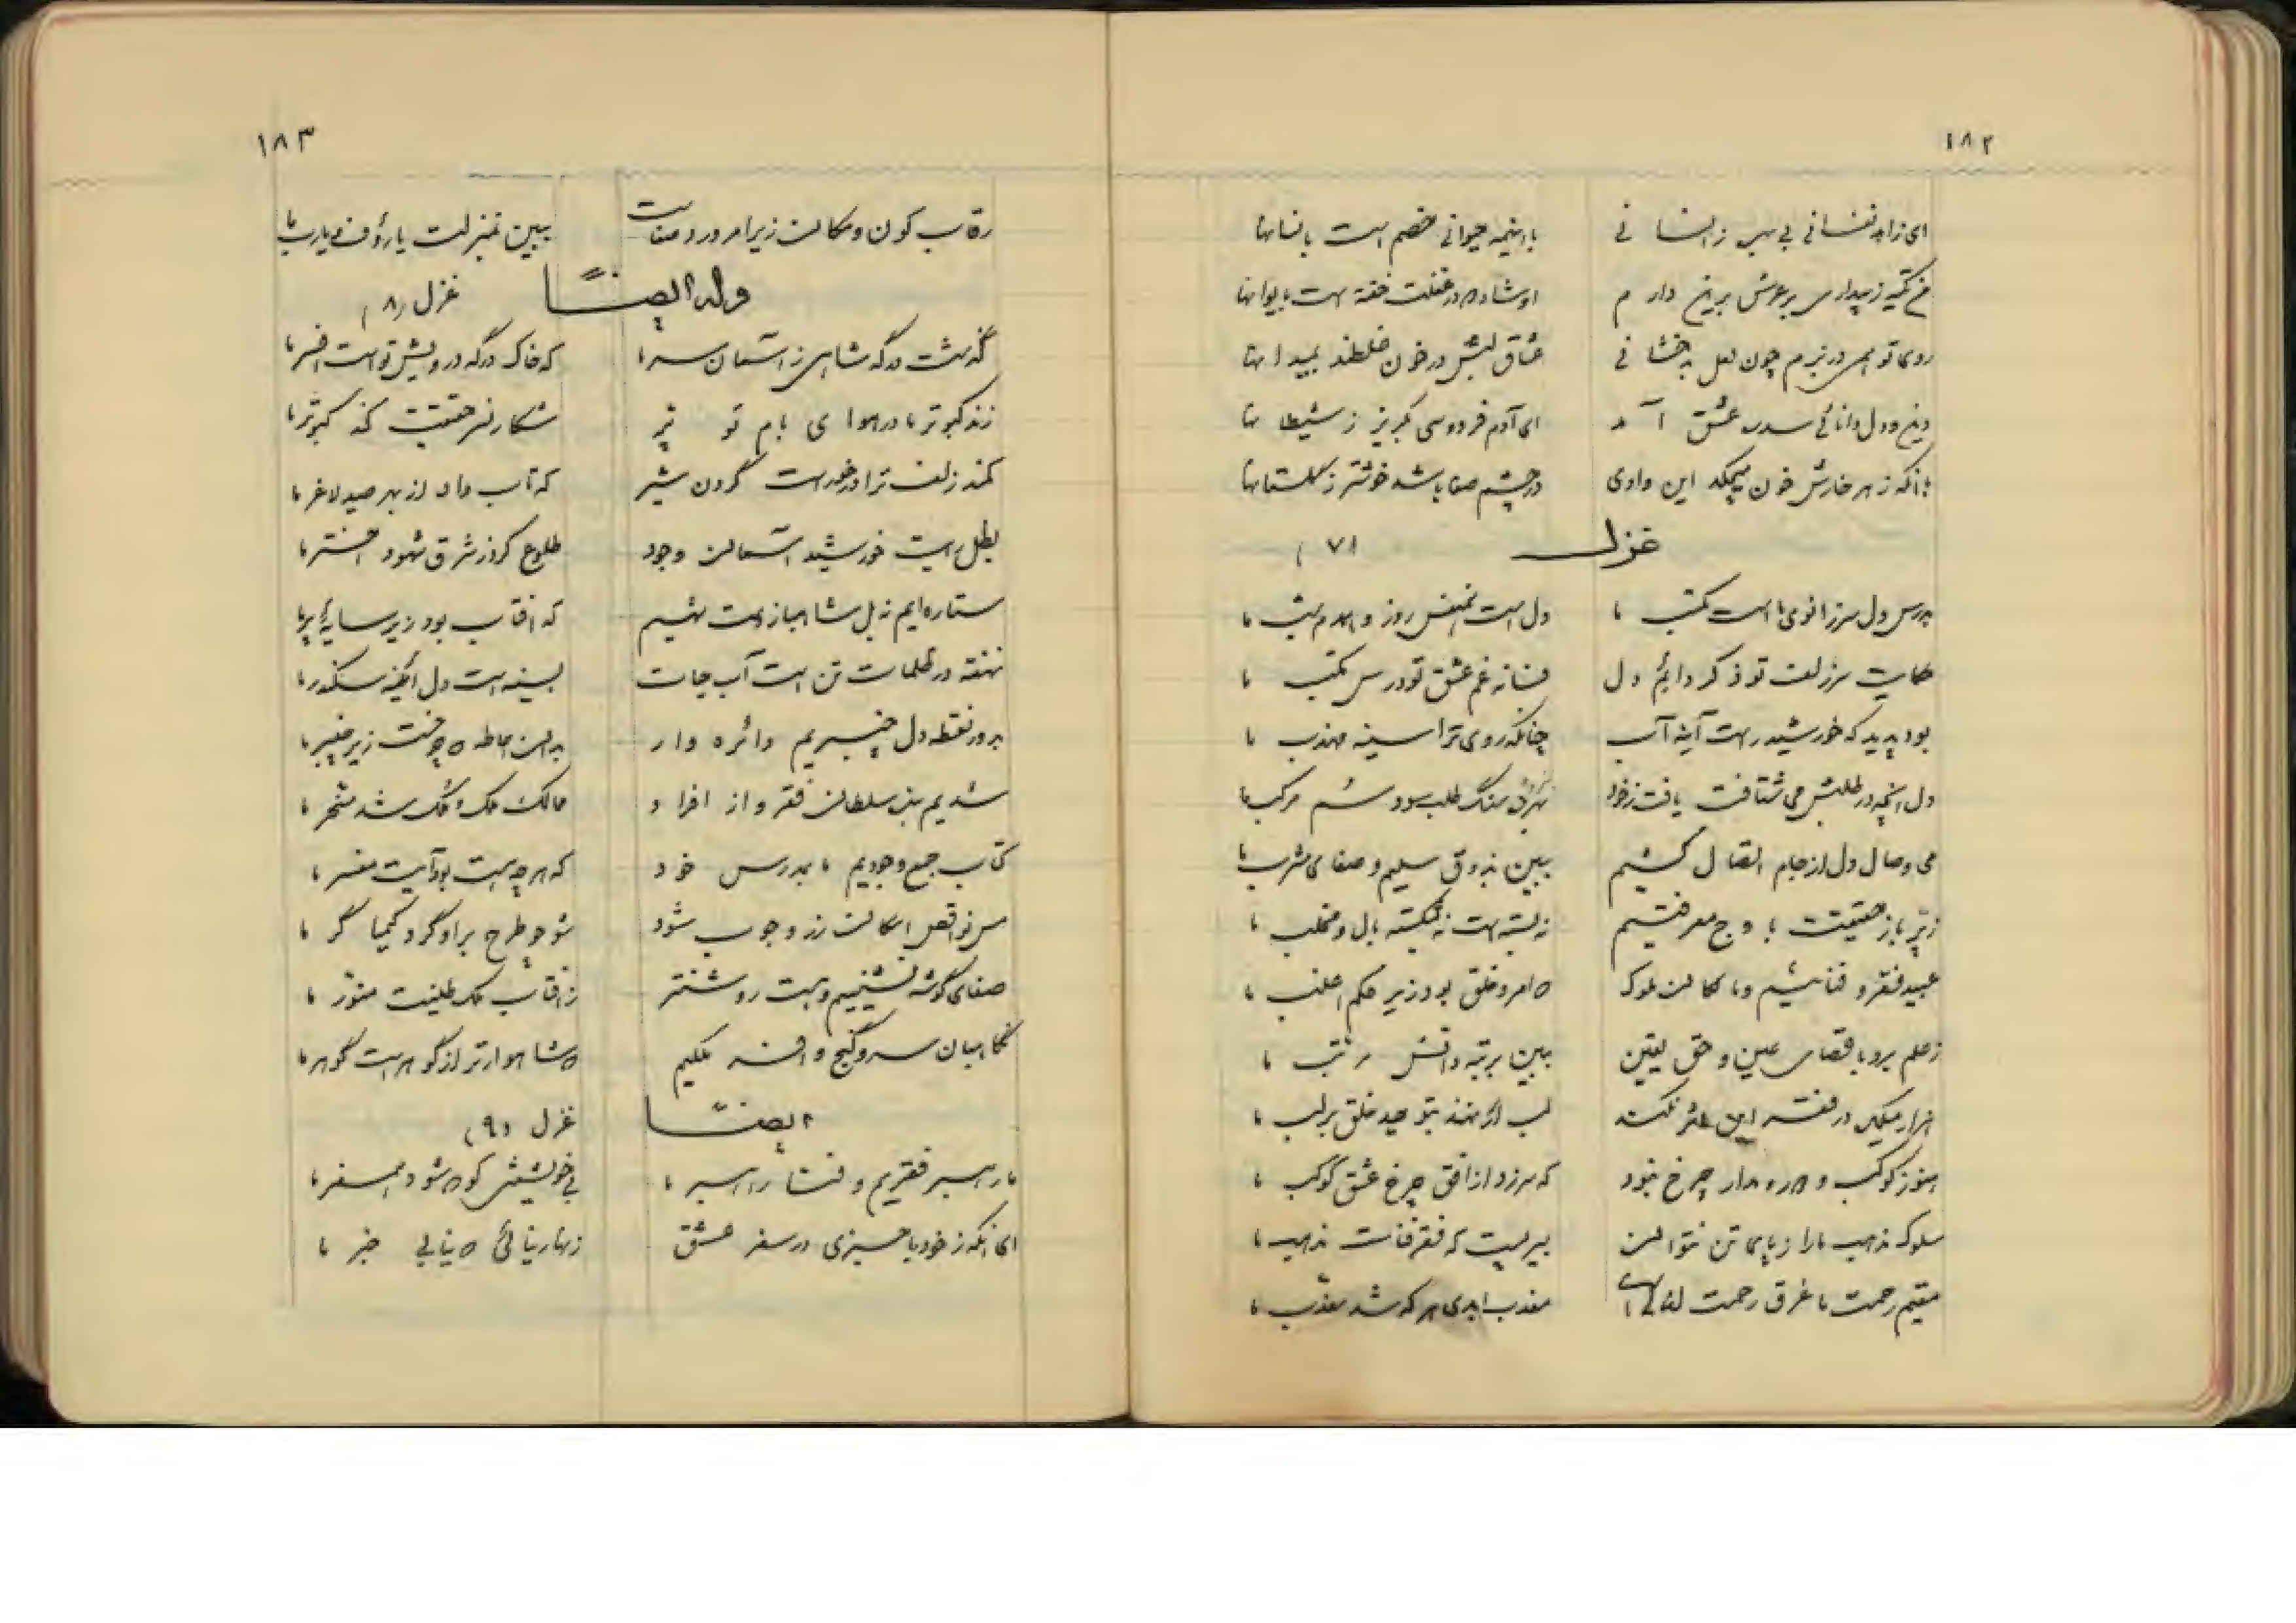 ۱۸۲
ای زاهد نفسانی بی بهر ز انسانی با اینهمه حیوانی خصم است بانسانها
من تکیه ز بیداری بر عرش برین دارم او شاد در غفلت خفته است بایوانها
روی تو همی در بزم چون لعل بدخشانی عشاق لبش در خون غلطند بمیدانها
دین و دل و دانائی سد ره عشق آمد ای آدم فردوسی بگریز ز شیطانها
آنکه ز هر خارش خون میچکد این وادی در چشم صفا باشد خوشتر ز گلستانها
غزل (۷)
بدرس دل سر زانوی ما است مکتب ما دل است همنفس روز و همدم شب ما
حکایت سر زلف تو ذکر دایم دل فسانه غم عشق تو درس مکتب ما
بود پدید که خورشید راست آینه آب چنانکه روی ترا سینه مهذب ما
دل آنچه در طلبش می شتافت یافت ز خود سنگ طلب سود سم مرکب ما
می وصال دل از جام اتصال کشیم ببین بذوق سلیم و صفای مشرب ما
بپر باز حقیقت باوج معرفتیم نه بسته است نه شکسته بال و مخلب ما
عبید فقر و فنائیم و مالکان ملوک امر و خلق بود زیر حکم اغلب ما
ز علم برد باقصای عین و حق یقین ببین برتبه دانش مرتب ما
هزار میکده در لب اگر نهند بتوحید خلق بر لب ما
هنوز کوکب و مدار چرخ نبود که سر زد از افق چرخ عشق کوکب ما
سلوک مذهب ما را ز پای تن نتوان بسر بیست که فقر فناست مذهب ما
مقیم رحمت ما غرق رحمت معذب ابدی هر که شد معذب ما
۱۸۳
رقاب کون و مکان زیر امر و رد صفاست ببین بمنزلت یا رؤف و یارب ما
وله ایضاً غزل (۸)
گذشت درگه شاهی ز آسمان سر ما که خاک درگه درویش تو است افسر ما
زند کبوتر ما در هوای بام تو پر شکار نسر حقیقت کند کبوتر ما
کمند زلف ترا در خور است گردن شیر که تاب داد از بهر صید لاغر ما
بطل است خورشید آسمان وجود طلوع کرد ز شرق شهود اختر ما
ستاره ایم نه بل شاهباز همت نهیم که آفتاب بود زیر سایه پر ما
نهفته در ظلمات تن است آب حیات بسینه است دل آیینه سکندر ما
بدور نقطه دل چنبریم دائره وار بدان احاطه چرخست زیر چنبر ما
شدیم بنده سلطان فقر و از افراد ممالک ملک و ملک شد مسخر ما
کتاب جمع وجودیم ما بمدرس خود که هر چه هست بود آیت مفسر ما
مس نواقص امکان زر وجوب شود شو چو طرح بر او گرد کیمیاگر ما
صفای گوشه نشینیم و هست روشنتر ز آفتاب فلک طلعت منور ما
نگاهبان سر و گنج و افسر ملکیم شاهوارتر از گوهر است گوهر ما
ایضاً غزل (۹)
ما راهبر فقریم و فنا راهبر ما بی خویشتن کو شود همسفر ما
ای آنکه ز خود باخبری در سفر عشق زنهار نیائی نیابی خبر ما